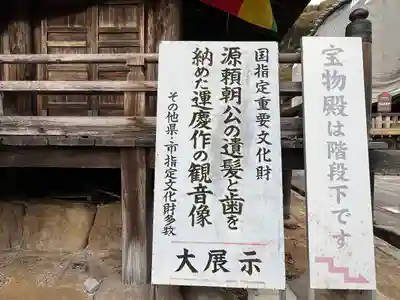 国指定重要文化財
源頼朝公の遺髪と歯を
納めた運慶作の観音像
その他県・市指定文化財多数
大展示
宝物殿は階段下です